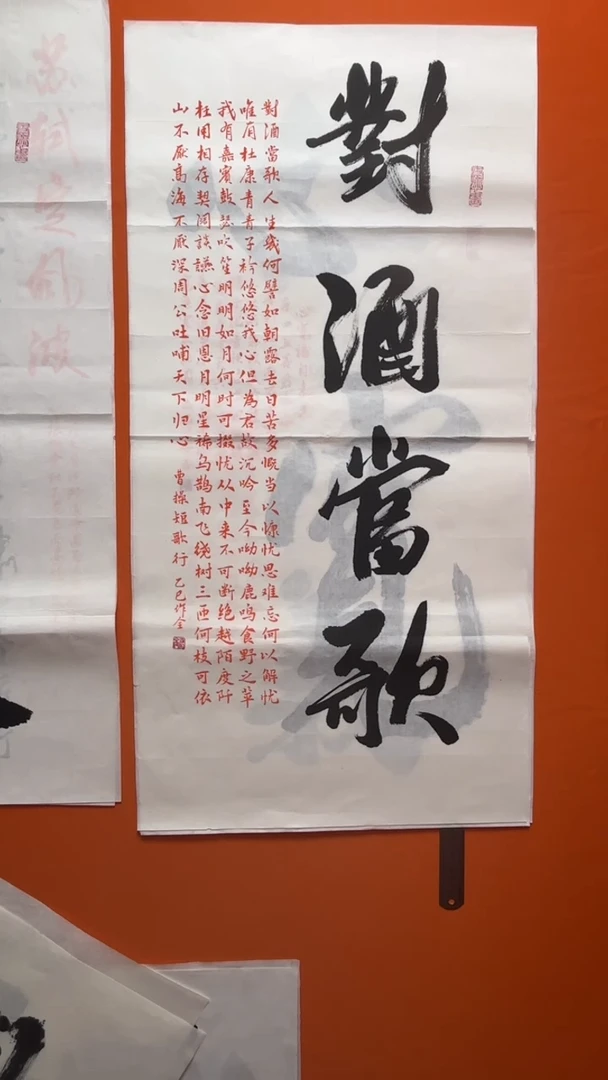 對酒當歌
對酒當歌人生幾何譬如朝露去日苦多慨当以慷忧思难忘何以解忧
唯有杜康青青子衿悠悠我心但為君故沉吟至今呦呦鹿鸣食野之苹
我有嘉賓鼓瑟吹笙明明如月何时可掇忧从中来不可断绝越陌度阡
枉用相存契阔談讌心念旧恩月明星稀乌鹊南飞绕树三匝何枝可依
山不厭高海不厭深周公吐哺天下归心 曹操短歌行 乙巳作
苏轼定风波